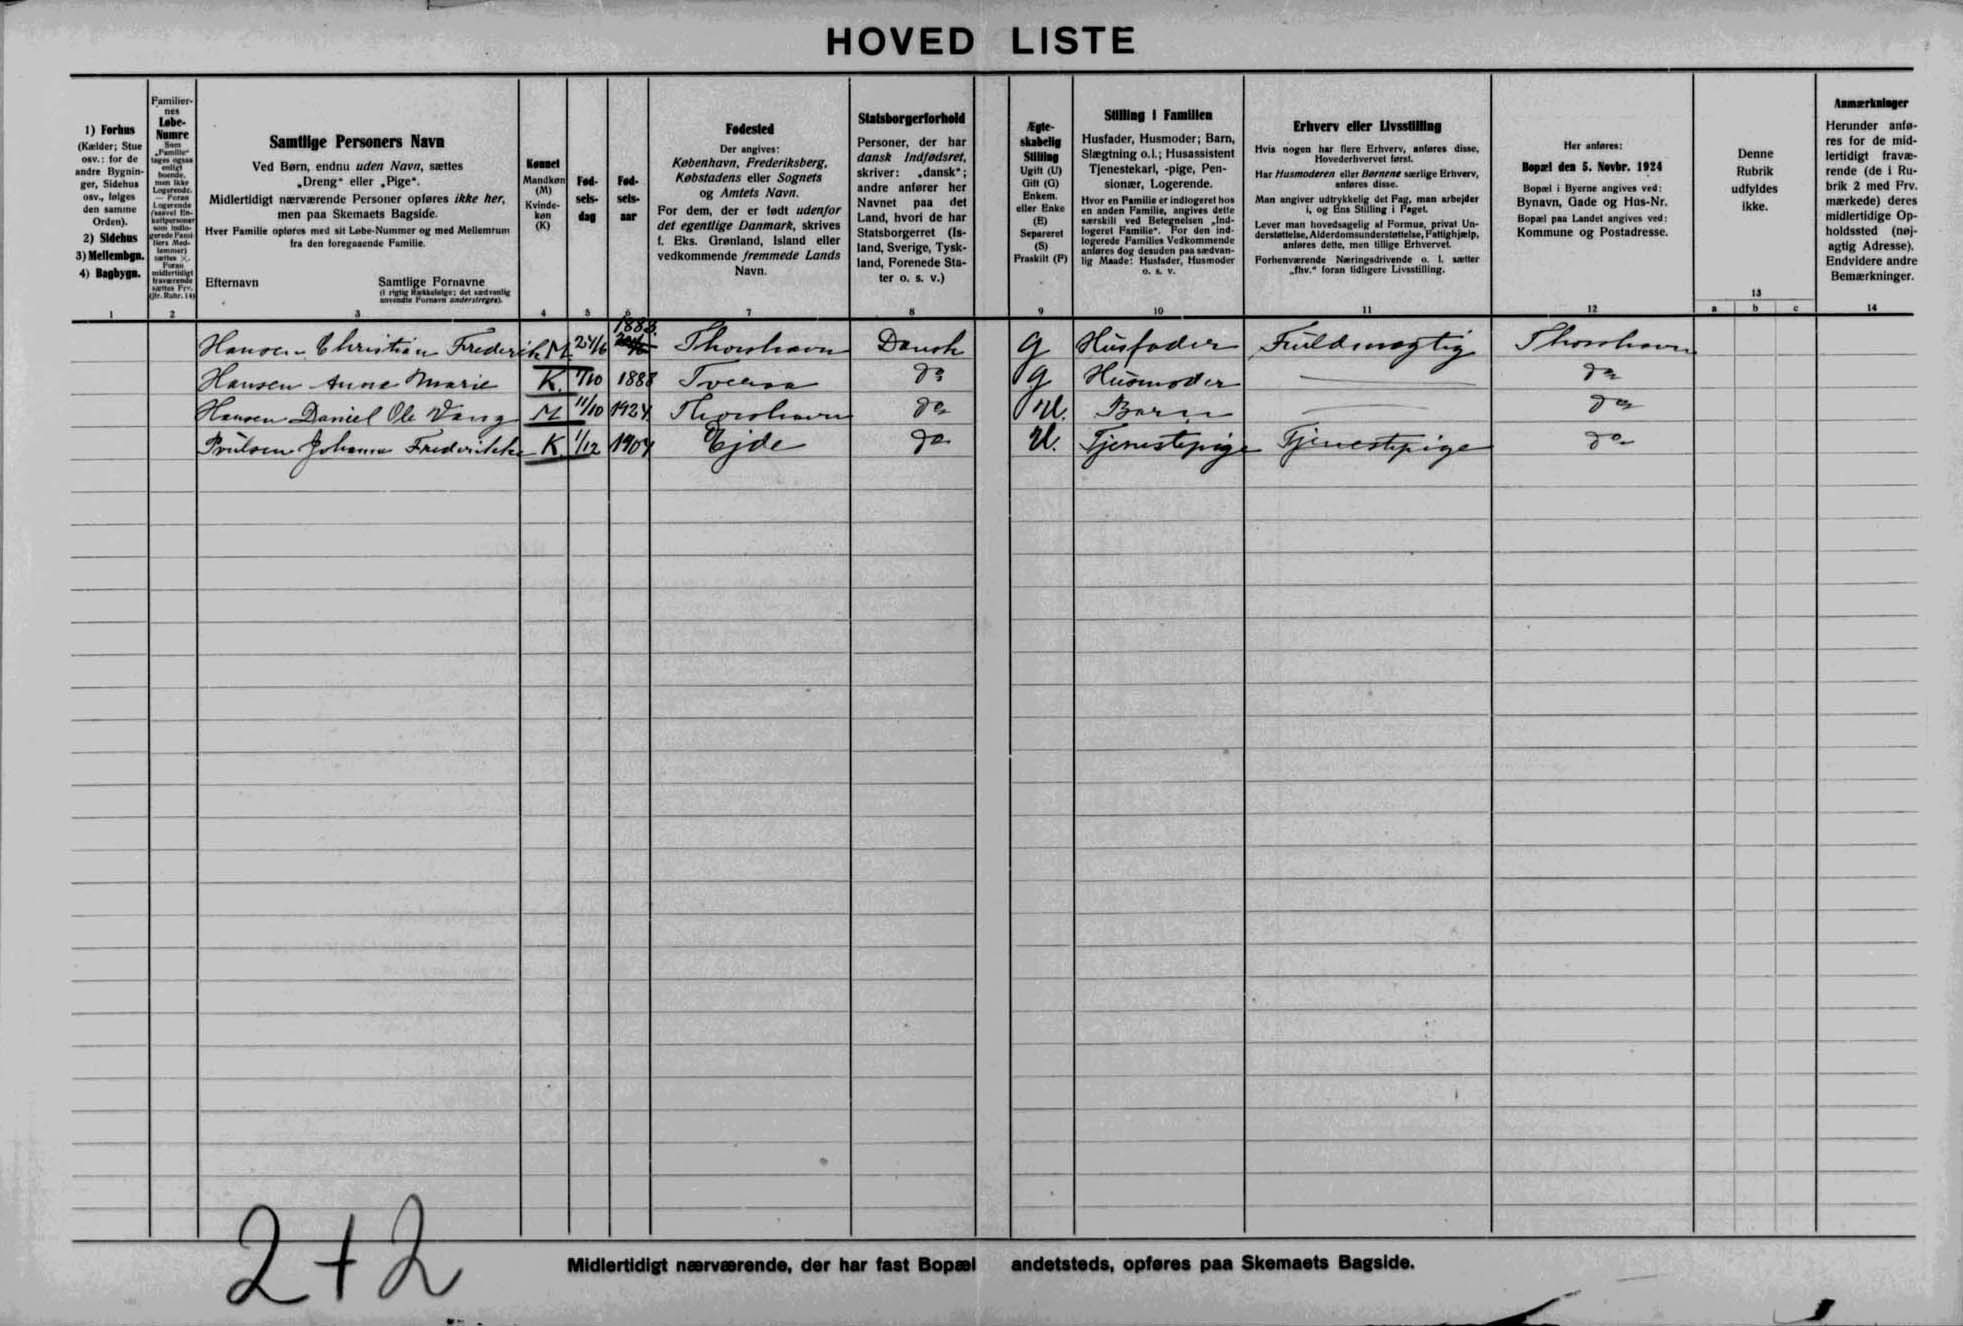 HOVED LISTE
1) Forhus
(Kælder; Stue
osv.: for de
andre Bygnin-
ger, Sidehus
osv., følges
den samme
Orden).
2) Sidehus
3) Mellembgn.
4) Bagbygn.
1
Familier-
nes
Løbe-
Numre
Som
„Familie“
tages ogsaa
enligt
boende,
men ikke
Logerende.
— Foran
Logerende
(saavel En-
keltpersoner
som indlo-
gerede Fami-
liers Med-
lemmer)
sættes ×.
Foran
midlertidigt
fraværende
sættes Frv.
(jfr. Rubr. 14)
2
Samtlige Personers Navn
Ved Børn, endnu uden Navn, sættes
„Dreng“ eller „Pige“.
Midlertidigt nærværende Personer opføres ikke her,
men paa Skemaets Bagside.
Hver Familie opføres med sit Løbe-Nummer og med Mellemrum
fra den foregaaende Familie.
Efternavn Samtlige Fornavne
(i rigtig Rækkefølge; det sædvanlig
anvendte Fornavn understreges).
3
Kønnet
Mandkøn
(M)
Kvinde-
køn
(K)
4
Fød-
sels-
dag
5
Fød-
sels-
aar
6
Fødested
Der angives:
København, Frederiksberg,
Købstadens eller Sognets
og Amtets Navn.
For dem, der er født udenfor
det egentlige Danmark, skrives
f. Eks. Grønland, Island eller
vedkommende fremmede Lands
Navn.
7
Statsborgerforhold
Personer, der har
dansk Indfødsret,
skriver: „dansk“;
andre anfører her
Navnet paa det
Land, hvori de har
Statsborgerret (Is-
land, Sverige, Tysk-
land, Forenede Sta-
ter o. s. v.)
8
Ægte-
skabelig
Stilling
Ugift (U)
Gift (G)
Enkem.
eller Enke
(E)
Separeret
(S)
Fraskilt (F)
9
Stilling i Familien
Husfader, Husmoder; Barn,
Slægtning o.l.; Husassistent
Tjenestekarl, -pige, Pen-
sionær, Logerende.
Hvor en Familie er indlogeret hos
en anden Familie, angives dette
særskilt ved Betegnelsen „Ind-
logeret Familie“. For den ind-
logerede Families Vedkommende
anføres dog desuden paa sædvan-
lig Maade: Husfader, Husmoder
o. s. v.
10
Erhverv eller Livsstilling
Hvis nogen har flere Erhverv, anføres disse,
Hovederhvervet først.
Har Husmoderen eller Børnene særlige Erhverv,
anføres disse.
Man angiver udtrykkelig det Fag, man arbejder
i, og Ens Stilling i Faget.
Lever man hovedsagelig af Formue, privat Un-
derstøttelse, Alderdomsunderstøttelse, Fattighjælp,
anføres dette, men tillige Erhvervet.
Forhenværende Næringsdrivende o. l. sætter
„fhv.“ foran tidligere Livsstilling.
11
Her anføres:
Bopæl den 5. Novbr. 1924
Bopæl i Byerne angives ved:
Bynavn, Gade og Hus-Nr.
Bopæl paa Landet angives ved:
Kommune og Postadresse.
12
Denne
Rubrik
udfyldes
ikke.
13
a b c
Anmærkninger
Herunder anfø-
res for de mid-
lertidigt fravæ-
rende (de i Ru-
brik 2 med Frv.
mærkede) deres
midlertidige Op-
holdssted (nøj-
agtig Adresse).
Endvidere andre
Bemærkninger.
14
Hansen Christian Frederik M 24/6 1888. Thorshavn Dansk G Husfader Fuldmægtig Thorshavn
Hansen Anna Marie K. /10 1888 Tveraa do G Husmoder — do
Hansen Daniel Ole Vang M 11/10 1924 Thorshavn do U. Barn — do
Poulsen Johanna Frederikke K. 1/12 1907 Ejde do U. Tjenestepige Tjenestepige do
2+2
Midlertidigt nærværende, der har fast Bopæl andetsteds, opføres paa Skemaets Bagside.